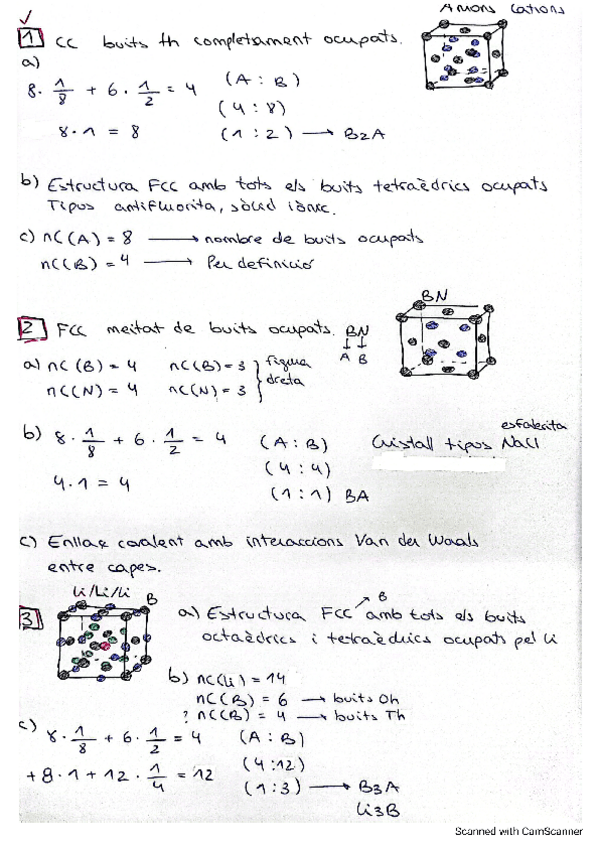 Anions Cations
1 CC buits th completament ocupats.
a)
8 · 1/8 + 6 · 1/2 = 4 (A : B)
(4 : 8)
8 · 1 = 8 (1 : 2) → B2A
b) Estructura FCC amb tots els buits tetraèdrics ocupats
Tipus antifluorita, sòlid iònic.
c) nC(A) = 8 → nombre de buits ocupats
nC(B) = 4 → Per definició
BN
2 FCC meitat de buits ocupats. BN
↓ ↓
A B
a) nC(B) = 4 nC(B) = 3 } figura
nC(N) = 4 nC(N) = 3 } dreta
esfalerita
b) 8 · 1/8 + 6 · 1/2 = 4 (A : B) Cristall tipus NaCl
(4 : 4)
4 · 1 = 4 (1 : 1) BA
c) Enllaç covalent amb interaccions Van der Waals
entre capes.
Li/Li/Li B
3
B
a) Estructura FCC amb tots els buits
octaèdrics i tetraèdrics ocupats pel Li
b) nC(Li) = 14
nC(B) = 6 → buits Oh
? nC(B) = 4 → buits Th
c)
8 · 1/8 + 6 · 1/2 = 4 (A : B)
(4 : 12)
+ 8 · 1 + 12 · 1/4 = 12 (1 : 3) → B3A
Li3B
Scanned with CamScanner